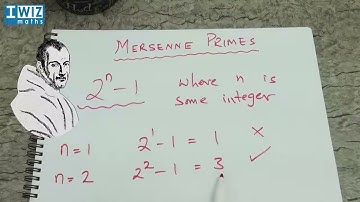 I WIZ
maths
MERSENNE PRIMES
2ⁿ - 1 where n is
some integer
n = 1 2¹ - 1 = 1 ×
n = 2 2² - 1 = 3 ✓